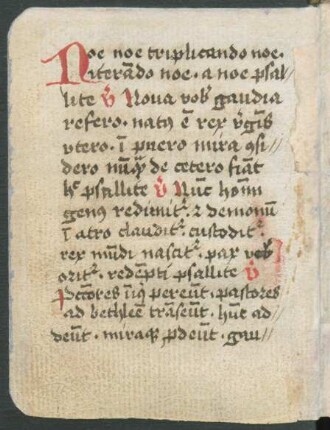 Noe noe triplicando noe·
iterādo noe· a noe psal//
lite ℣ Noua vob̾ gaudia
refero· natꝰ ē rex v̾gīs
vtero· ī puero mira ꝯsi//
dero nūq̄ de cetero fiāt
h̾ psallite ℣ Nūc homī
genus redimit᷑· ⁊ demonū
ī atro claudit᷑ custodit᷑·
rex mūdi nascit᷑· pax vob̾
orit᷑· redēpti psallite ℣
Pctōres īiq̾ pereūt· pastores
ad bethleē trāseūt· hūc ad//
deūt· miraq̾ pdeūt· gau//